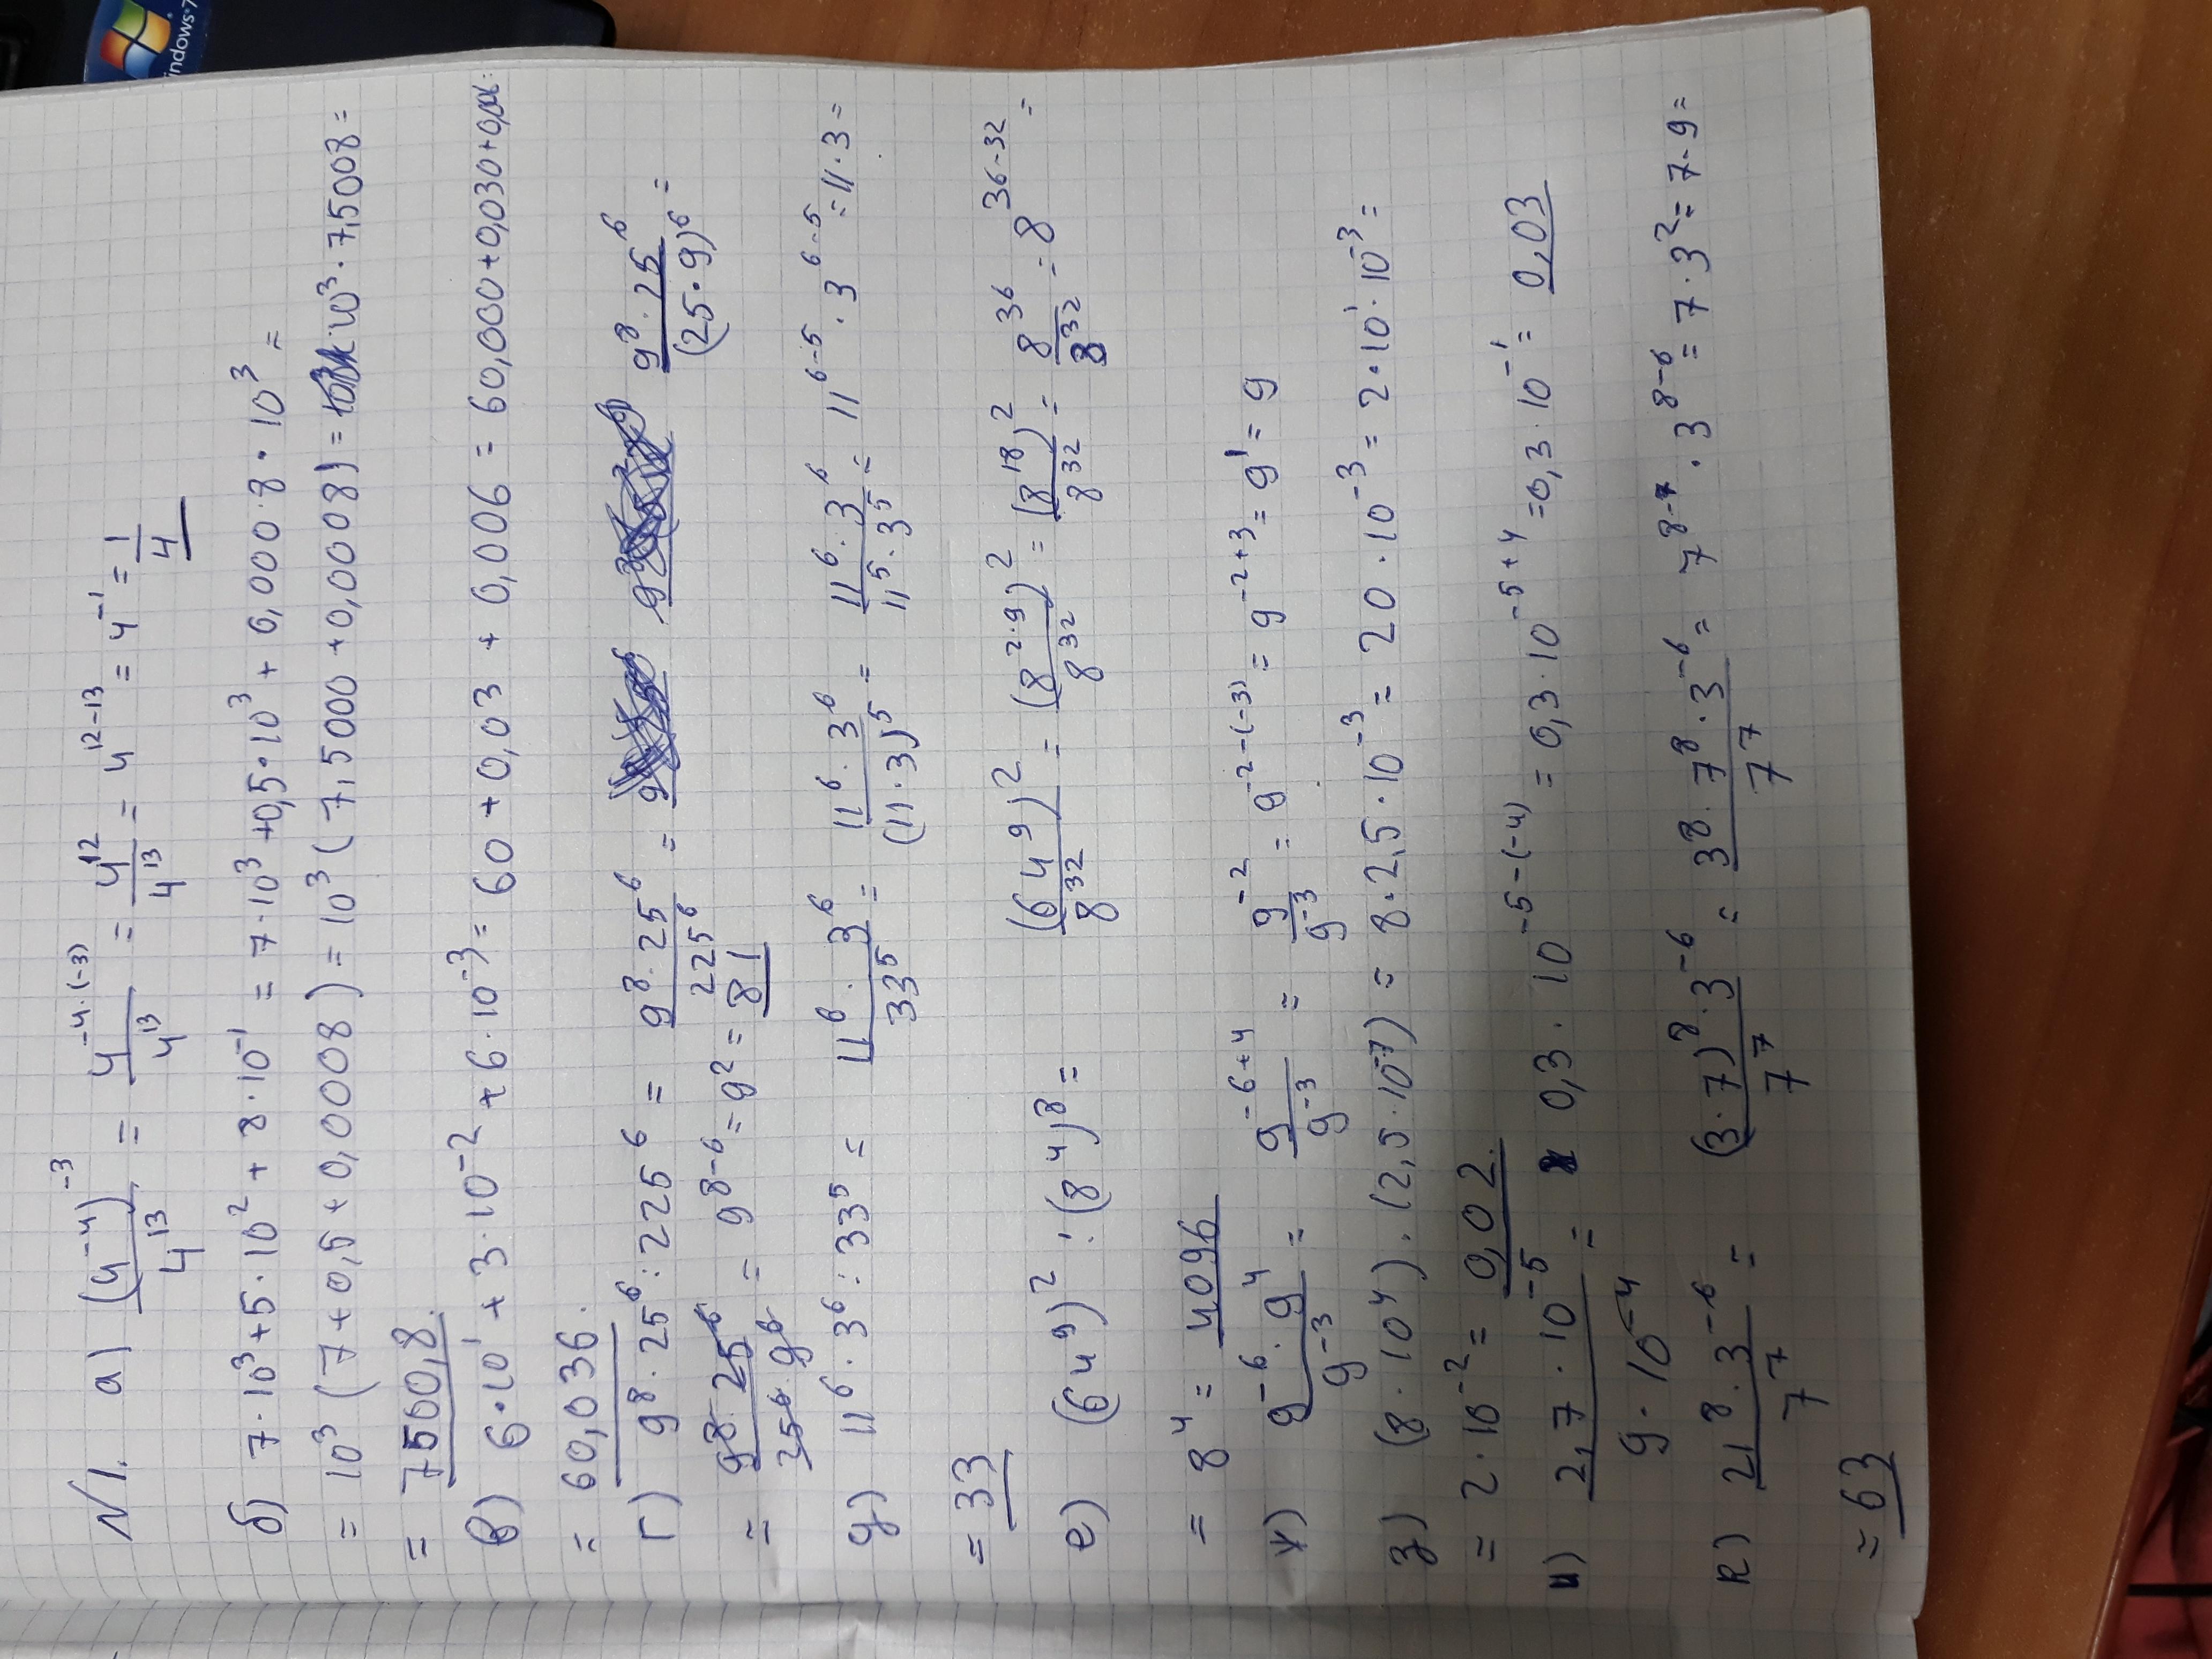 N1. а) (4⁻⁴)⁻³/4¹³ = 4^(-4·(-3))/4¹³ = 4¹²/4¹³ = 4^(12-13) = 4⁻¹ = 1/4
б) 7·10³+5·10²+8·10⁻¹ = 7·10³+0,5·10³+0,0008·10³ =
= 10³(7+0,5+0,0008) = 10³(7,5000+0,0008) = 10³·7,5008 =
= 7500,8.
в) 6·10¹+3·10⁻²+6·10⁻³ = 60+0,03+0,006 = 60,000+0,030+0,006=
= 60,036.
г) 9⁸·25⁶:225⁶ = 9⁸·25⁶/225⁶ = 9⁸·25⁶/(25·9)⁶ =
= 9⁸·25⁶/25⁶·9⁶ = 9^(8-6) = 9² = 81
д) 11⁶·3⁶:33⁵ = 11⁶·3⁶/33⁵ = 11⁶·3⁶/(11·3)⁵ = 11⁶·3⁶/11⁵·3⁵ = 11^(6-5)·3^(6-5) = 11·3 =
= 33
е) (64⁹)²:(8⁴)⁸ = (64⁹)²/8³² = (8^(2·9))²/8³² = (8¹⁸)²/8³² = 8³⁶/8³² = 8^(36-32) =
= 8⁴ = 4096
9⁻⁶·9⁴/9⁻³ = 9^(-6+4)/9⁻³ = 9⁻²/9⁻³ = 9^(-2-(-3)) = 9^(-2+3) = 9¹ = 9
з) (8·10⁴)·(2,5·10⁻⁷) = 8·2,5·10⁻³ = 20·10⁻³ = 2·10¹·10⁻³ =
= 2·10⁻² = 0,02.
и) 2,7·10⁻⁵/9·10⁻⁴ = 0,3·10^(-5-(-4)) = 0,3·10^(-5+4) = 0,3·10⁻¹ = 0,03
к) 21⁸·3⁻⁶/7⁷ = (3·7)⁸·3⁻⁶/7⁷ = 3⁸·7⁸·3⁻⁶/7⁷ = 7^(8-7)·3^(8-6) = 7·3² = 7·9 =
= 63
Windows 7